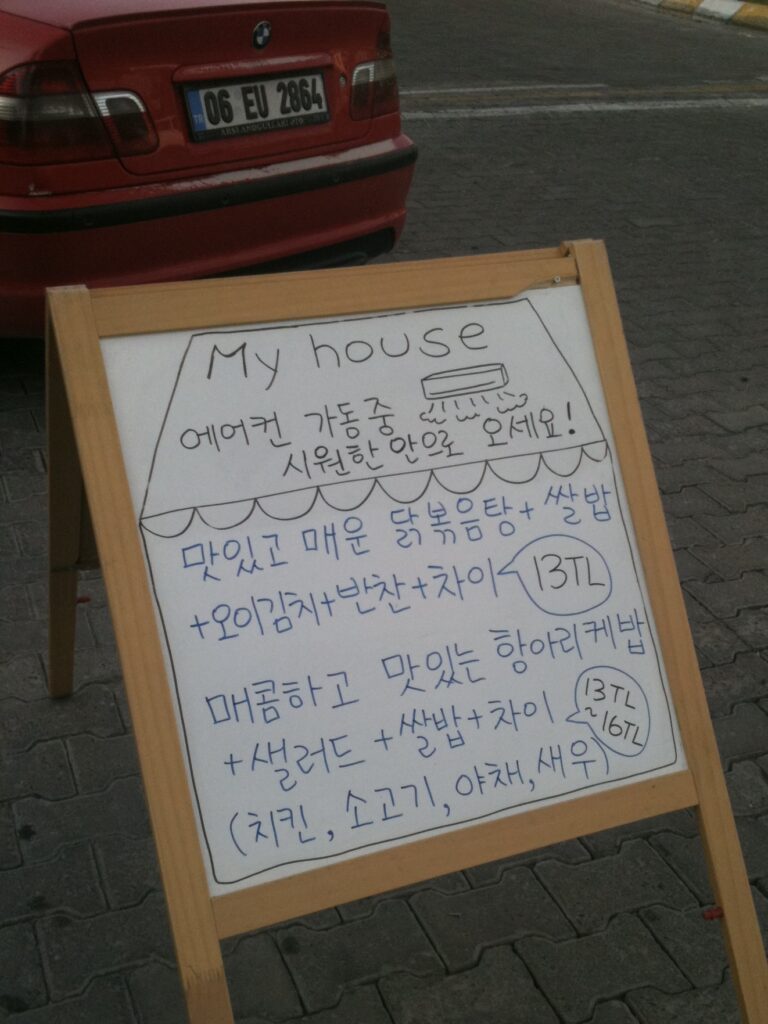 06 EU 2864
TR
My house
에어컨 가동중
시원한 안으로 오세요!
맛있고 매운 닭볶음탕+ 쌀밥
+오이김치+반찬+차이 13TL
매콤하고 맛있는 항아리케밥
+샐러드 +쌀밥+차이 13TL
~16TL
(치킨, 소고기, 야채, 새우)